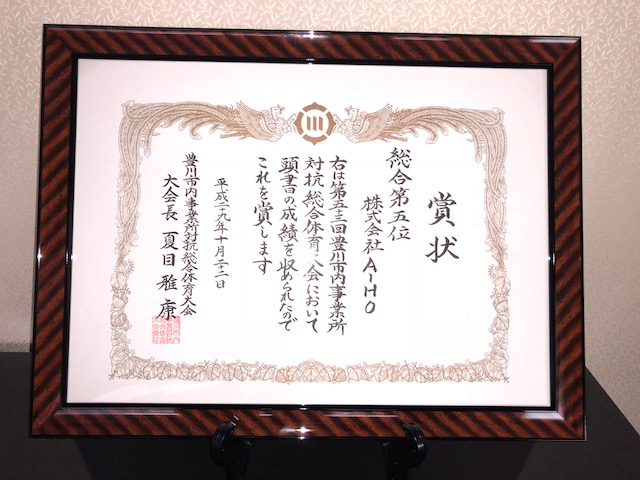 賞状
総合第五位
株式会社 AIHO
右は第五三回豊川市内事業所
対抗総合体育大会において
頭書の成績を収められたので
これを賞します
平成二九年十月二二日
豊川市内事業所対抗総合体育大会
大会長 夏目雅康